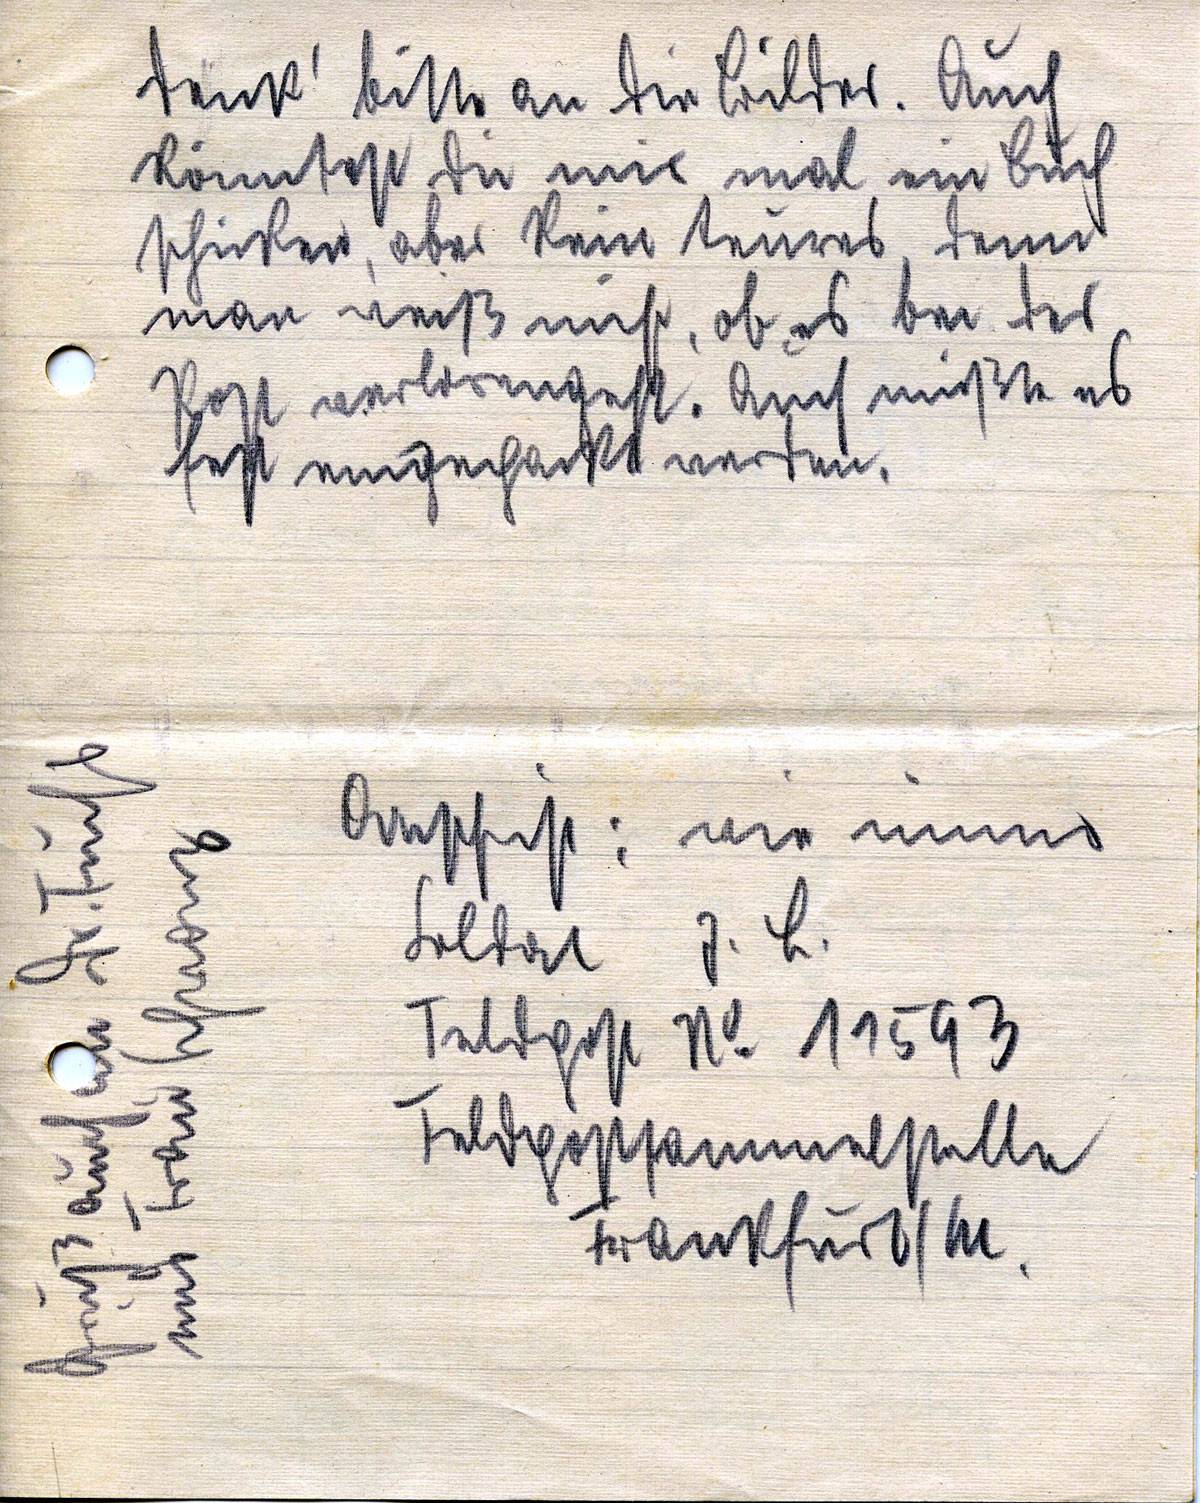 denk' bitte an die Bilder. Auch
könntest Du mir mal ein Buch
schicken, aber kein teures, denn
man weiß nicht, ob es bei der
Post verlorengeht. Auch müßte es
fest eingepackt werden.
Anschrift: wie immer
Soldat J. L.
Feldpost No. 11593
Feldpostsammelstelle
Frankfurt/M.
Grüß auch
und Frau